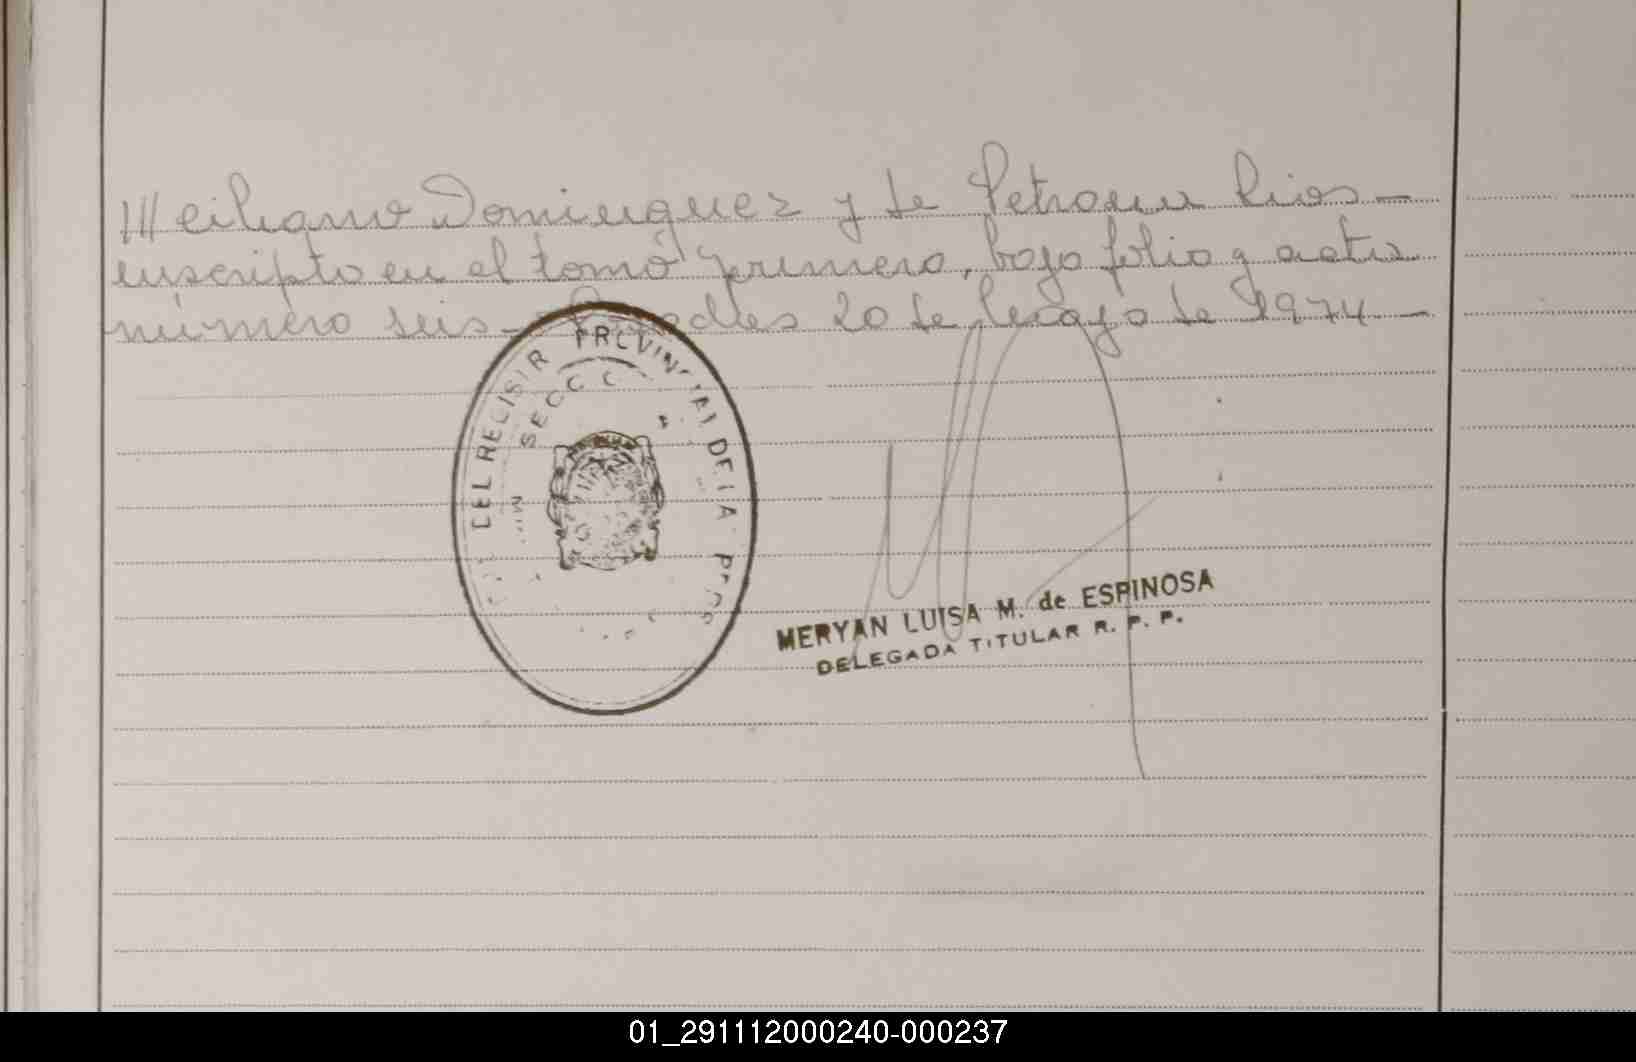 ///ciliano Dominguez y de Petrona Rios -
inscripto en el tomo primero, bajo folio y acta
número seis - 20 de Mayo de 1974 -
DEL REGISTR PROVINCIAL DE LA
SECC
MERYAN LUISA M. de ESPINOSA
DELEGADA TITULAR R. P. P.
01_291112000240-000237